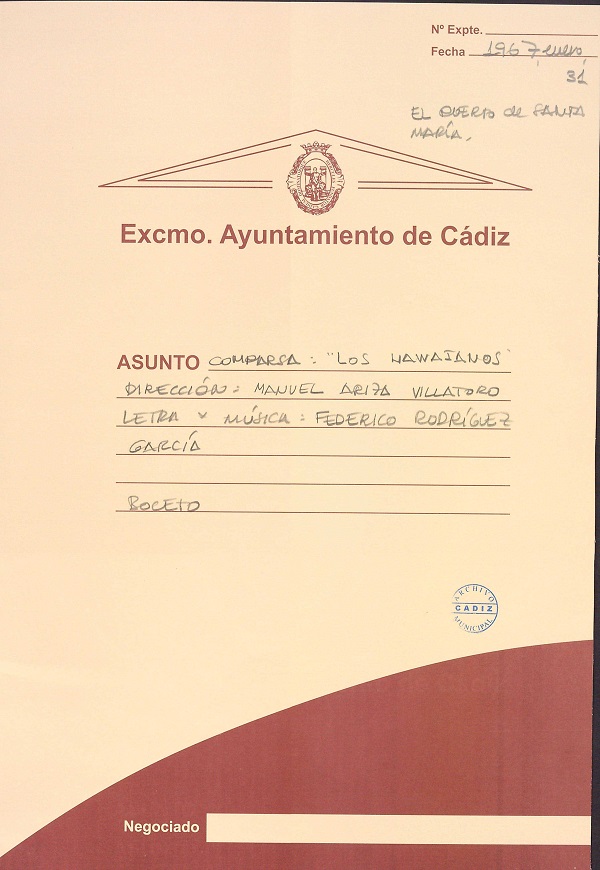 Nº Expte.
Fecha 1967, enero,
31
EL PUERTO de SANTA
MARÍA.
Excmo. Ayuntamiento de Cádiz
ASUNTO COMPARSA: "LOS HAWAIANOS"
DIRECCIÓN: MANUEL ARIZA VILLATORO
LETRA Y MÚSICA: FEDERICO RODRÍGUEZ
GARCÍA
BOCETO
ARCHIVO
CADIZ
MUNICIPAL
Negociado